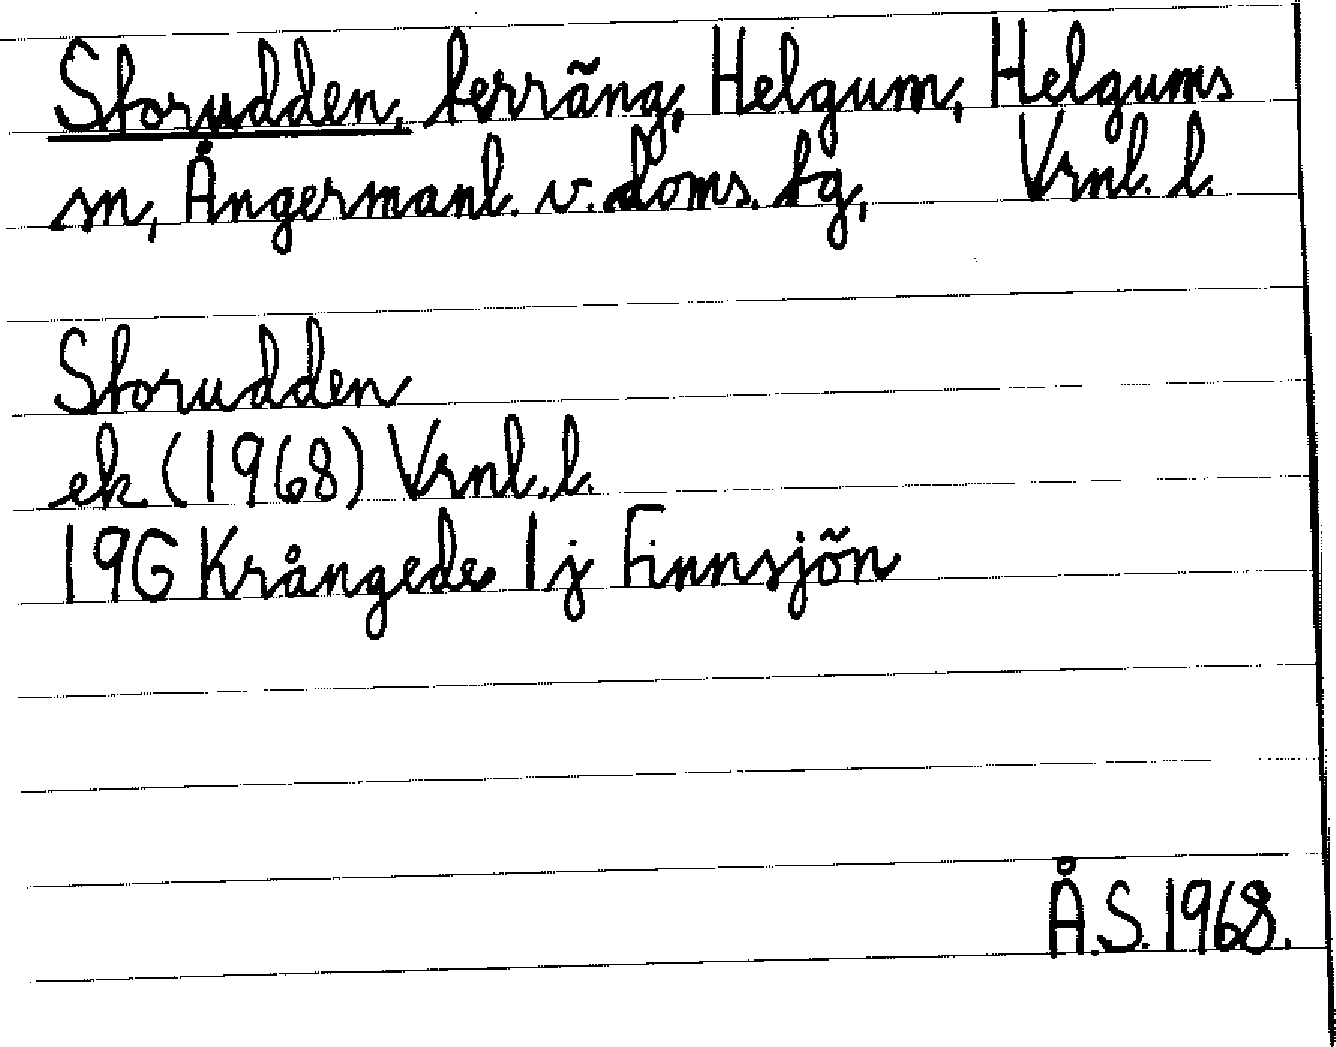 Storudden, terräng, Helgum, Helgums
sn, Ångermanl. v. doms. tg, Vrnl. l.
Storudden
ek (1968) Vrnl. l.
19G Krångede 1j Finnsjön
Å.S. 1968.